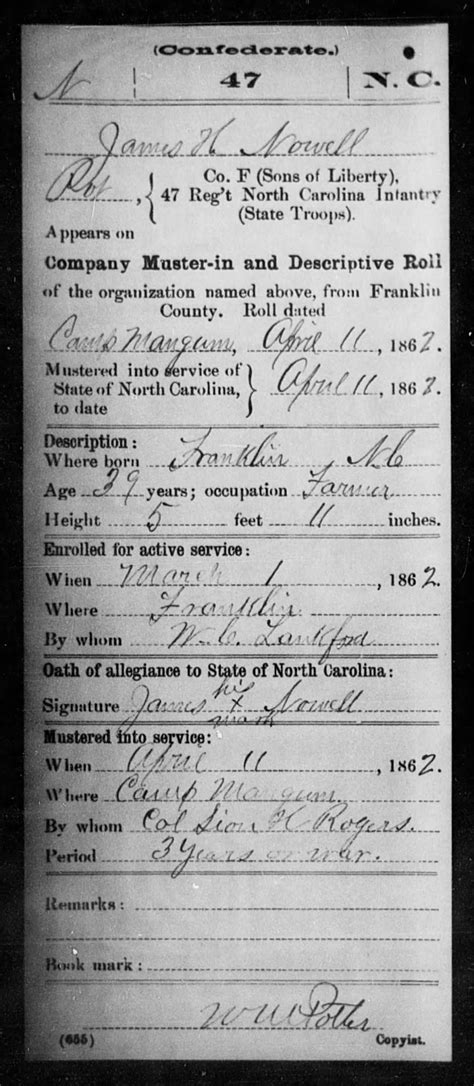 (Confederate.)
N | 47 | N. C.
James H Nowell
Pvt, { Co. F (Sons of Liberty),
47 Reg't North Carolina Infantry
(State Troops).
Appears on
Company Muster-in and Descriptive Roll
of the organization named above, from Franklin
County. Roll dated
Camp Mangum, April 11, 1862.
Mustered into service of
State of North Carolina, } April 11, 1862.
to date
Description:
Where born Franklin N.C
Age 39 years; occupation Farmer
Height 5 feet 11 inches.
Enrolled for active service:
When March 1, 1862.
Where Franklin
By whom W. C. Lankford
Oath of allegiance to State of North Carolina:
his
Signature James x Nowell
mark
Mustered into service:
When April 11, 1862.
Where Camp Mangum
By whom Col Sion H. Rogers.
Period 3 years or war.
Remarks:
Book mark:
Wm Potter
(655) Copyist.